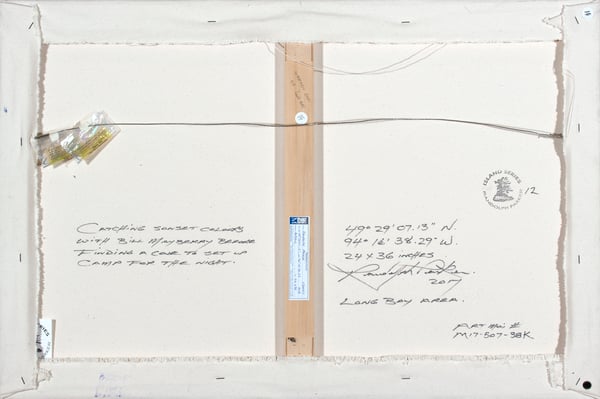 CATCHING SUNSET COLOURS
WITH BILL MAYBERRY BEFORE
FINDING A COVE TO SET UP
CAMP FOR THE NIGHT.
ISLAND SERIES
RANDOLPH PARKER
12
49° 29' 07.13" N.
94° 16' 38.29" W.
24 X 36 INCHES
Randolph Parker
2017
LONG BAY AREA.
M17-507-38K